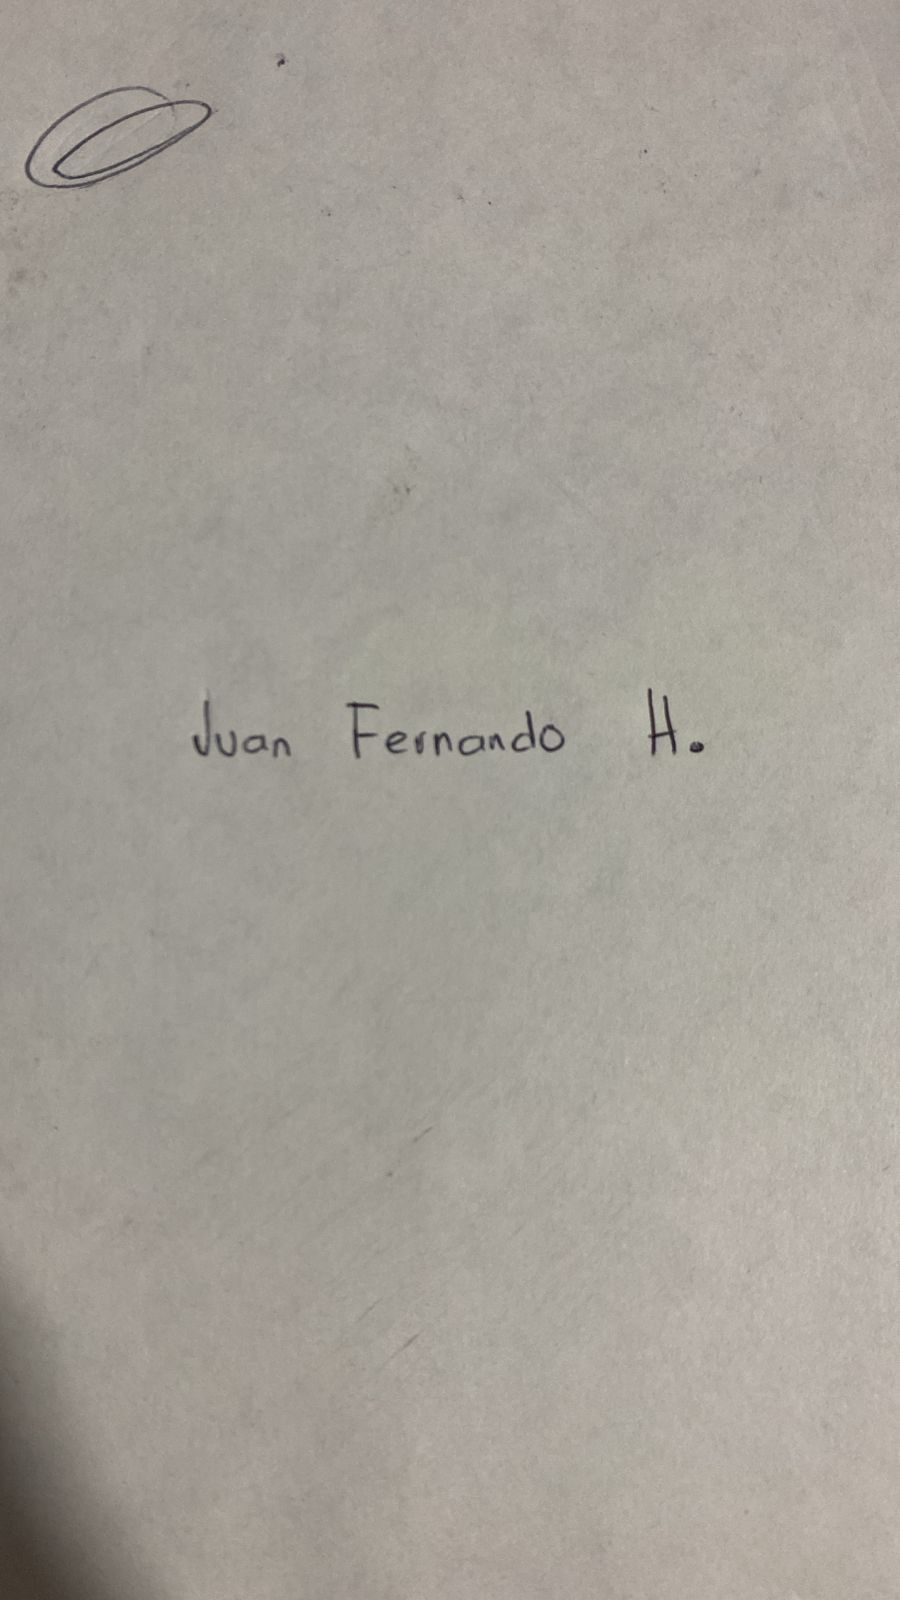 Juan Fernando H.